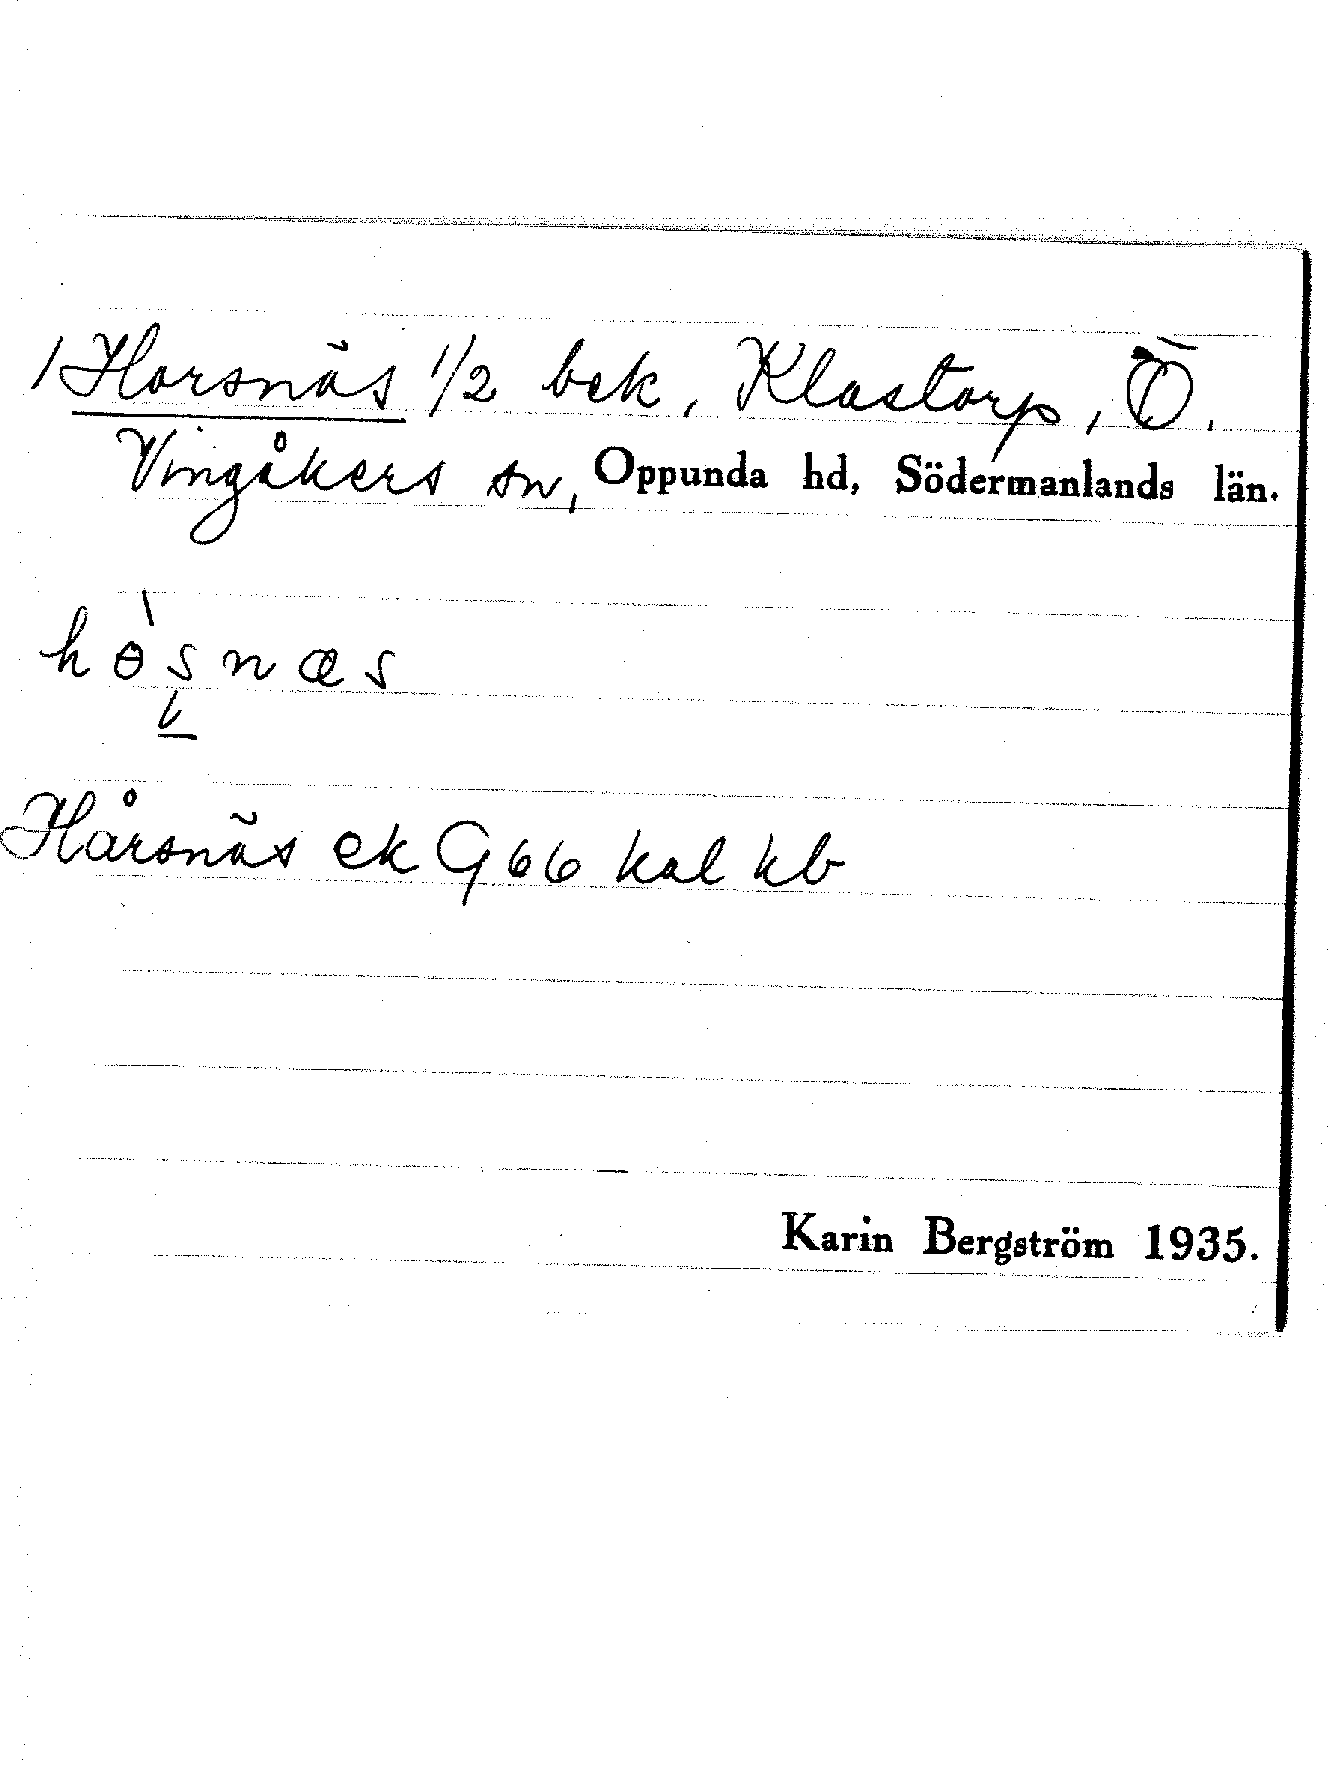 1 Horsnäs 1/2 bek, Klastorp, Ö.
Vingåkers sn, Oppunda hd, Södermanlands län.
hösnæs
Hårsnäs ek G66 kal kb
Karin Bergström 1935.